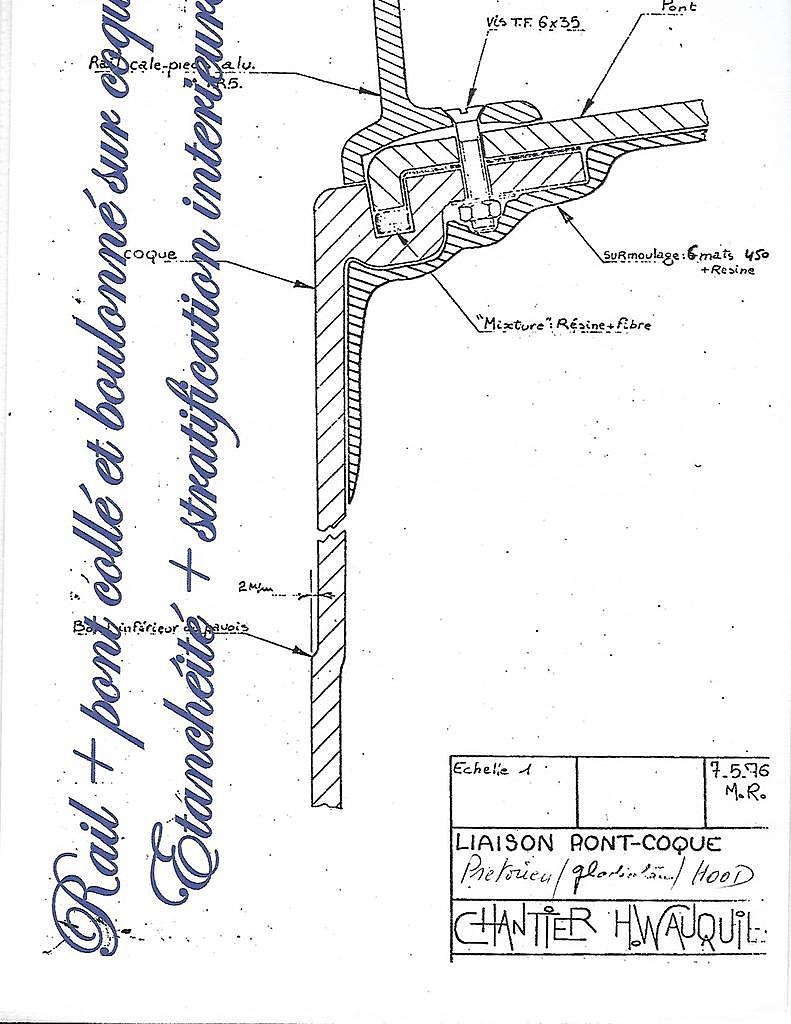 Pont
vis T.F. 6x35
Rail cale-pied alu.
R5.
coque
surmoulage: 6 mats 450
+ Resine
"Mixture": Résine + fibre
2 m/m
Bord inférieur du pavois
Rail + pont collé et boulonné sur coqu
Etanchéité + stratification interieure
Echelle 1
7.5.76
M.R.
LIAISON PONT-COQUE
Pretorien / gladiateur / HOOD
CHANTIER H.WAUQUIE